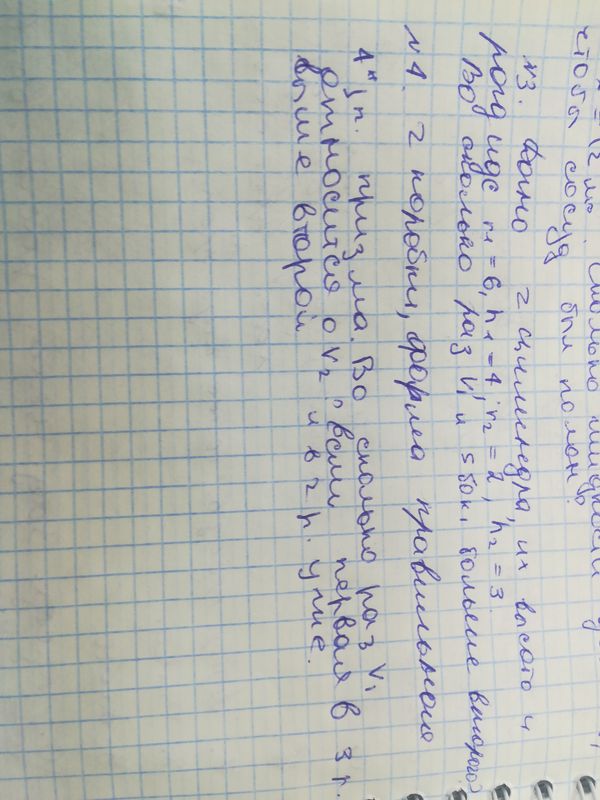 сколько жидкости
чтобы сосуд был полон?
№3. Дано 2 цилиндра, их высота и
радиус r1 = 6, h1 = 4, r2 = 2, h2 = 3.
Во сколько раз V1 и S бок. больше второго?
№4. 2 коробки, форма правильная
4х уг. призма. Во сколько раз V1
относится о V2, если первая в 3 р.
выше второй и в 2 р. уже.